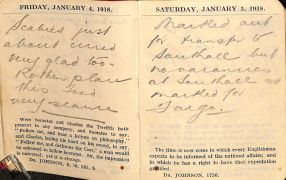 FRIDAY, JANUARY 4, 1918.
Scabies just
about cured
very glad too-
Rotten place
this. Food
very scarce
Were Socrates and Charles the Twelfth both
present in any company, and Socrates to say,
"Follow me, and hear a lecture on philosophy,"
and Charles, laying his hand on his sword, to say,
"Follow me, and dethrone the Czar," a man would
be ashamed to follow Socrates. Sir, the impression
is universal; yet it is strange.
DR. JOHNSON,
SATURDAY, JANUARY 5, 1918.
Marked out
for transfer to
Southall but
no vacancies
at Southall so
marked for
The time is now come in which every Englishman
expects to be informed of the national affairs; and
in which he has a right to have that expectation
gratified.
DR. JOHNSON, 1756.